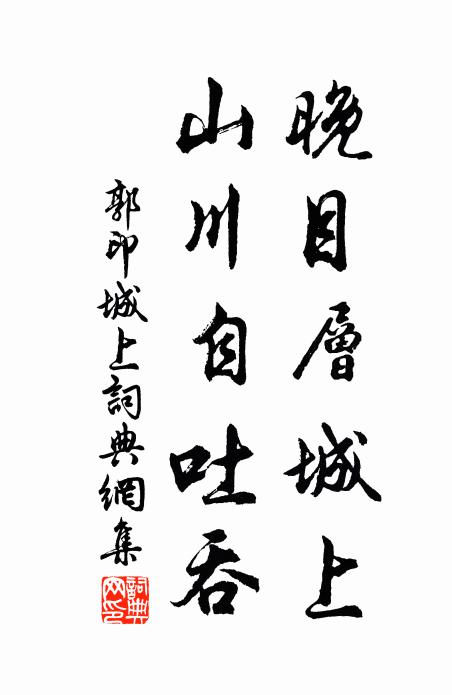 晚目層城上
山川自吐吞
郭印城上詞典網集
詞典網印